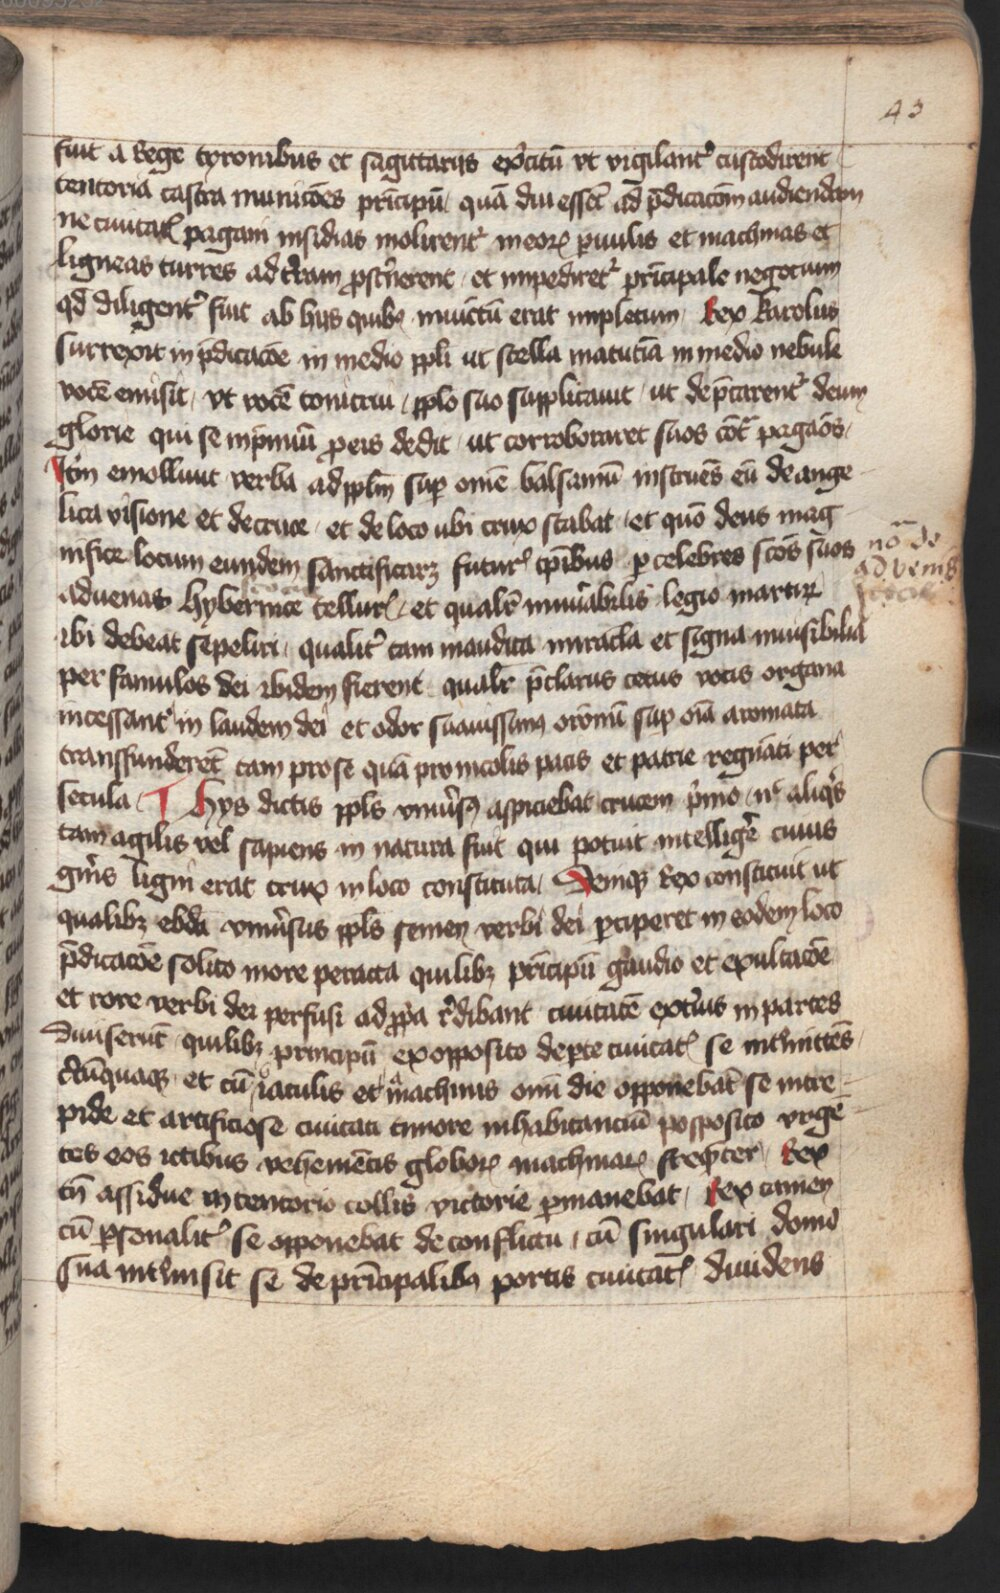 43
fuit a Rege tyronibus et sagittarijs exercitū vt vigilantˀ custodirent
tentoria castra municōes prīcipū quā diu essēt ad p̄dicacōm audiendam
ne ciuitatꝭ pagani insidias molirentˀ in eorꝫ puulis et machinas et
ligneas turres ad tˀram ꝓstˀnerent et impediretˀ prīcipale negocium
qd diligentˀ fuit ab hijs quibꝰ iniūctū erat impletum Rex Karolus
surrexit in p̄dicacōe in medio ppli ut stella matutīa in medio nebule
vocē emisit vt vocē tonitrui pplo suo supplicauit ut dep̄carentˀ deum
glorie qui se in p̄miū ꝓ eis dedit ut corroboraret suos cōtˀ pagaōs
emolliuit verba ad pplm̄ sup omē balsamū instruēs eū de ange
lica visione et de cruce et de loco ubi crux stabat et quō deus mag
nifice locum eundem sanctificarꝫ futurꝭ tp̄ibus ꝑ celebres scōs suos
aduenas hybernice tellurꝭ et qualitˀ innūabilis legio martirꝫ
ibi debeat sepeliri qualitˀ tam inaudita miracla et signa inuisibilia
per famulos dei ibidem fierent qualr̄ p̄clarus cetus vocis organa
incessantˀ in laudem dei et odor suauissimꝰ orōnū sup oīa aromata
transfunderēt tam pro se quā pro incolis pacis et patrie regnāti per
secula hys dictis ppls vniūsꝰ aspiciebat crucem pˀmo nᶜ aliqˀs
tam agilis vel sapiens in natura fuit qui potuit intelligˀe cuius
gn̄is ligni erat crux in loco constituta Deniqꝫ Rex constituit ut
qualibꝫ ebda vniūsus ppls semen verbi dei pˀciperet in eodem loco
p̄dicacōe solito more peracta quilibꝫ prīcipū gaudio et exultacōe
et rore verbi dei perfusi ad ꝓpa rˀdibant ciuitatē extˀius in partes
diuiserūt quilibꝫ principū ex opposito de pˀte ciuitatꝭ se intˀmittēs
cˀcūquaqꝫ et cū iaculis et machinis omī die opponebāt se intre
pide et artificiose ciuitati timore inhabitanciū posposito vrgē
tes eos ictibus vehemētis globorꝫ machinarꝫ Rex
tn̄ assidue in tentorio collis victorie ꝑmanebat Rex tamen
cū ꝑsonalitˀ se opponebat de conflictu cū singulari domo
sua intˀmisit se de prīcipalibꝰ portis ciuitatꝭ diuidens
nō de
advenis